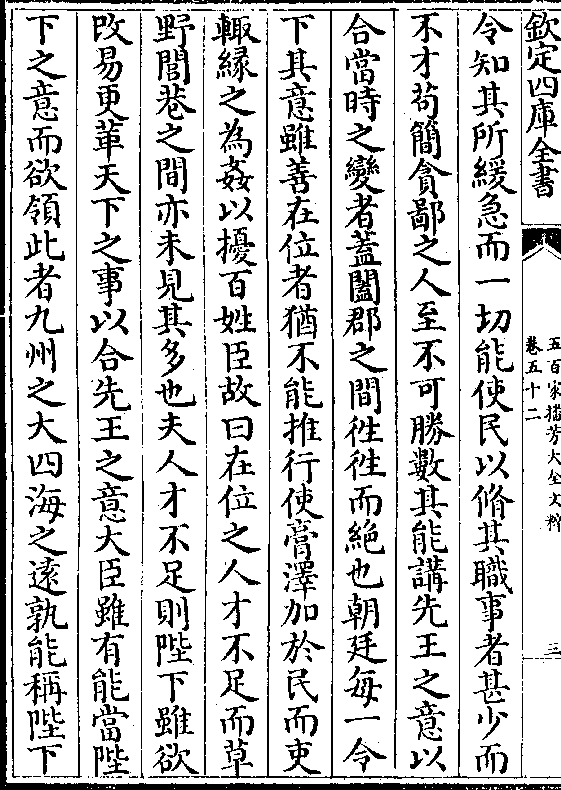 欽定四庫全書
五百家播芳大全文粹
卷五十二
三
令知其所緩急而一切能使民以脩其職事者甚少而
不才苟簡貪鄙之人至不可勝數其能講先王之意以
合當時之變者蓋闔郡之間徃徃而絶也朝廷每一令
下其意雖善在位者猶不能推行使膏澤加於民而吏
輙緣之為姦以擾百姓臣故曰在位之人才不足而草
野閭巷之間亦未見其多也夫人才不足則陛下雖欲
改易更革天下之事以合先王之意大臣雖有能當陛
下之意而欲領此者九州之大四海之逺孰能稱陛下